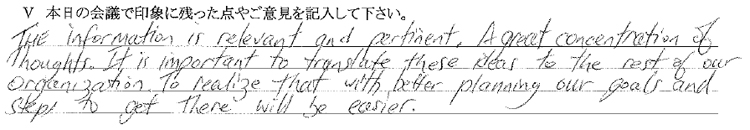 V 本日の会議で印象に残った点やご意見を記入して下さい。
THE information is relevant and pertinent. A great concentration of
thoughts. It is important to translate these ideas to the rest of our
organization. To realize that with better planning our goals and
steps to get there will be easier.